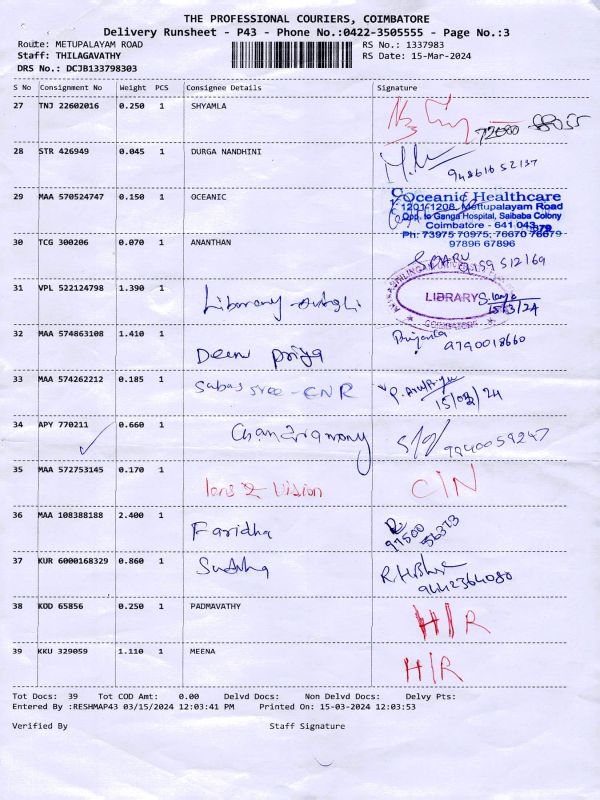 THE PROFESSIONAL COURIERS, COIMBATORE
Delivery Runsheet - P43 - Phone No.:0422-3505555 - Page No.:3
Route: METUPALAYAM ROAD RS No.: 1337983
Staff: THILAGAVATHY RS Date: 15-Mar-2024
DRS No.: DCJB133798303
S No Consignment No Weight PCS Consignee Details Signature
27 TNJ 22602016 0.250 1 SHYAMLA
28 STR 426949 0.045 1 DURGA NANDHINI
94861652137
29 MAA 570524747 0.150 1 OCEANIC
Oceanic Healthcare
1201-1208, Mettupalayam Road
Opp. to Ganga Hospital, Saibaba Colony
Coimbatore - 641 043
Ph: 73975 70975, 76670 76679
97896 67896
30 TCG 300206 0.070 1 ANANTHAN
31 VPL 522124798 1.390 1 Library
LIBRARY
15/3/24
COIMBATORE
32 MAA 574863108 1.410 1 Deen priya
Priyanka
9790018660
33 MAA 574262212 0.185 1 Sabas sree - CNR
15/03/24
34 APY 770211 0.660 1 Chandramony
9940059247
35 MAA 572753145 0.170 1 lens & Vision C/N
36 MAA 108388188 2.400 1 Faridha
97500
56373
37 KUR 6000168329 0.860 1 Sudha
9442364080
38 KOD 65856 0.250 1 PADMAVATHY H/R
39 KKU 329059 1.110 1 MEENA H/R
Tot Docs: 39 Tot COD Amt: 0.00 Delvd Docs: Non Delvd Docs: Delvy Pts:
Entered By :RESHMAP43 03/15/2024 12:03:41 PM Printed On: 15-03-2024 12:03:53
Verified By Staff Signature